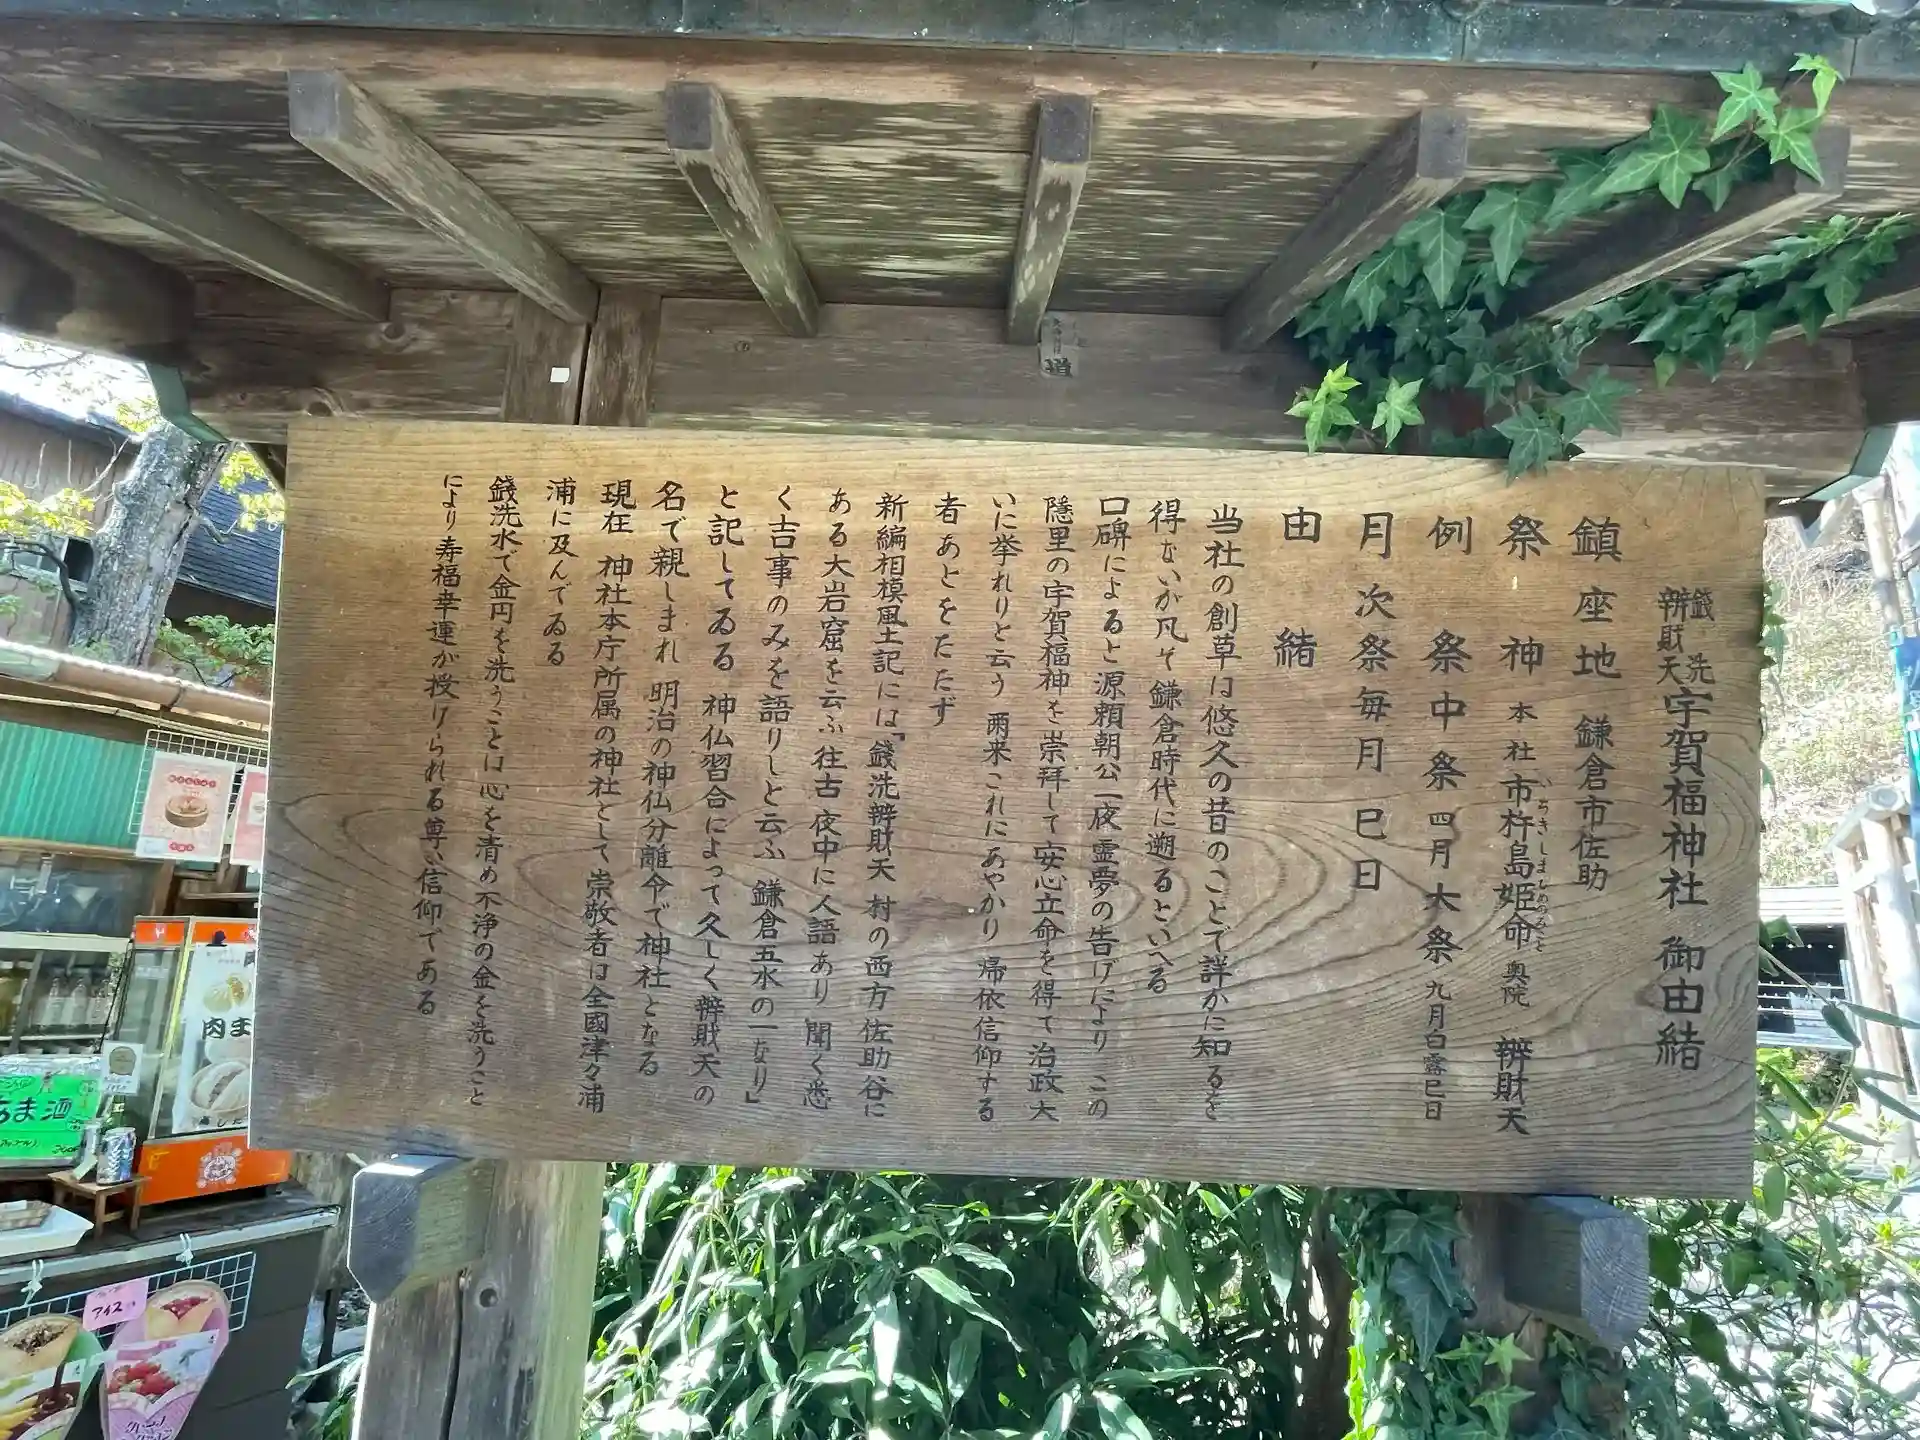 銭洗
辨財天 宇賀福神社 御由緒
鎮座地 鎌倉市佐助
祭神 本社 市杵島姫命 奥院 辨財天
いちきしまひめのみこと
例祭 中祭 四月 大祭 九月白露巳日
月次祭 毎月 巳日
由緒
当社の創草は悠久の昔のことで詳かに知るを
得ないが凡そ鎌倉時代に遡るといへる
口碑によると源頼朝公一夜霊夢の告げにより この
隠里の宇賀福神を崇拜して安心立命を得て治政大
いに挙れりと云う 爾来これにあやかり 帰依信仰する
者あとをたたず
新編相模風土記には「銭洗辨財天 村の西方佐助谷に
ある大岩窟を云ふ往古夜中に人語あり 聞く悉
く吉事のみを語りしと云ふ 鎌倉五水の一なり」
と記してゐる 神仏習合によって久しく辨財天の
名で親しまれ 明治の神仏分離令で神社となる
現在 神社本庁所属の神社として崇敬者は全國津々浦
浦に及んでゐる
銭洗水で金円を洗うことは心を清め不浄の金を洗うこと
により寿福幸運が授けられる尊い信仰である
肉ま
あま酒
アイス